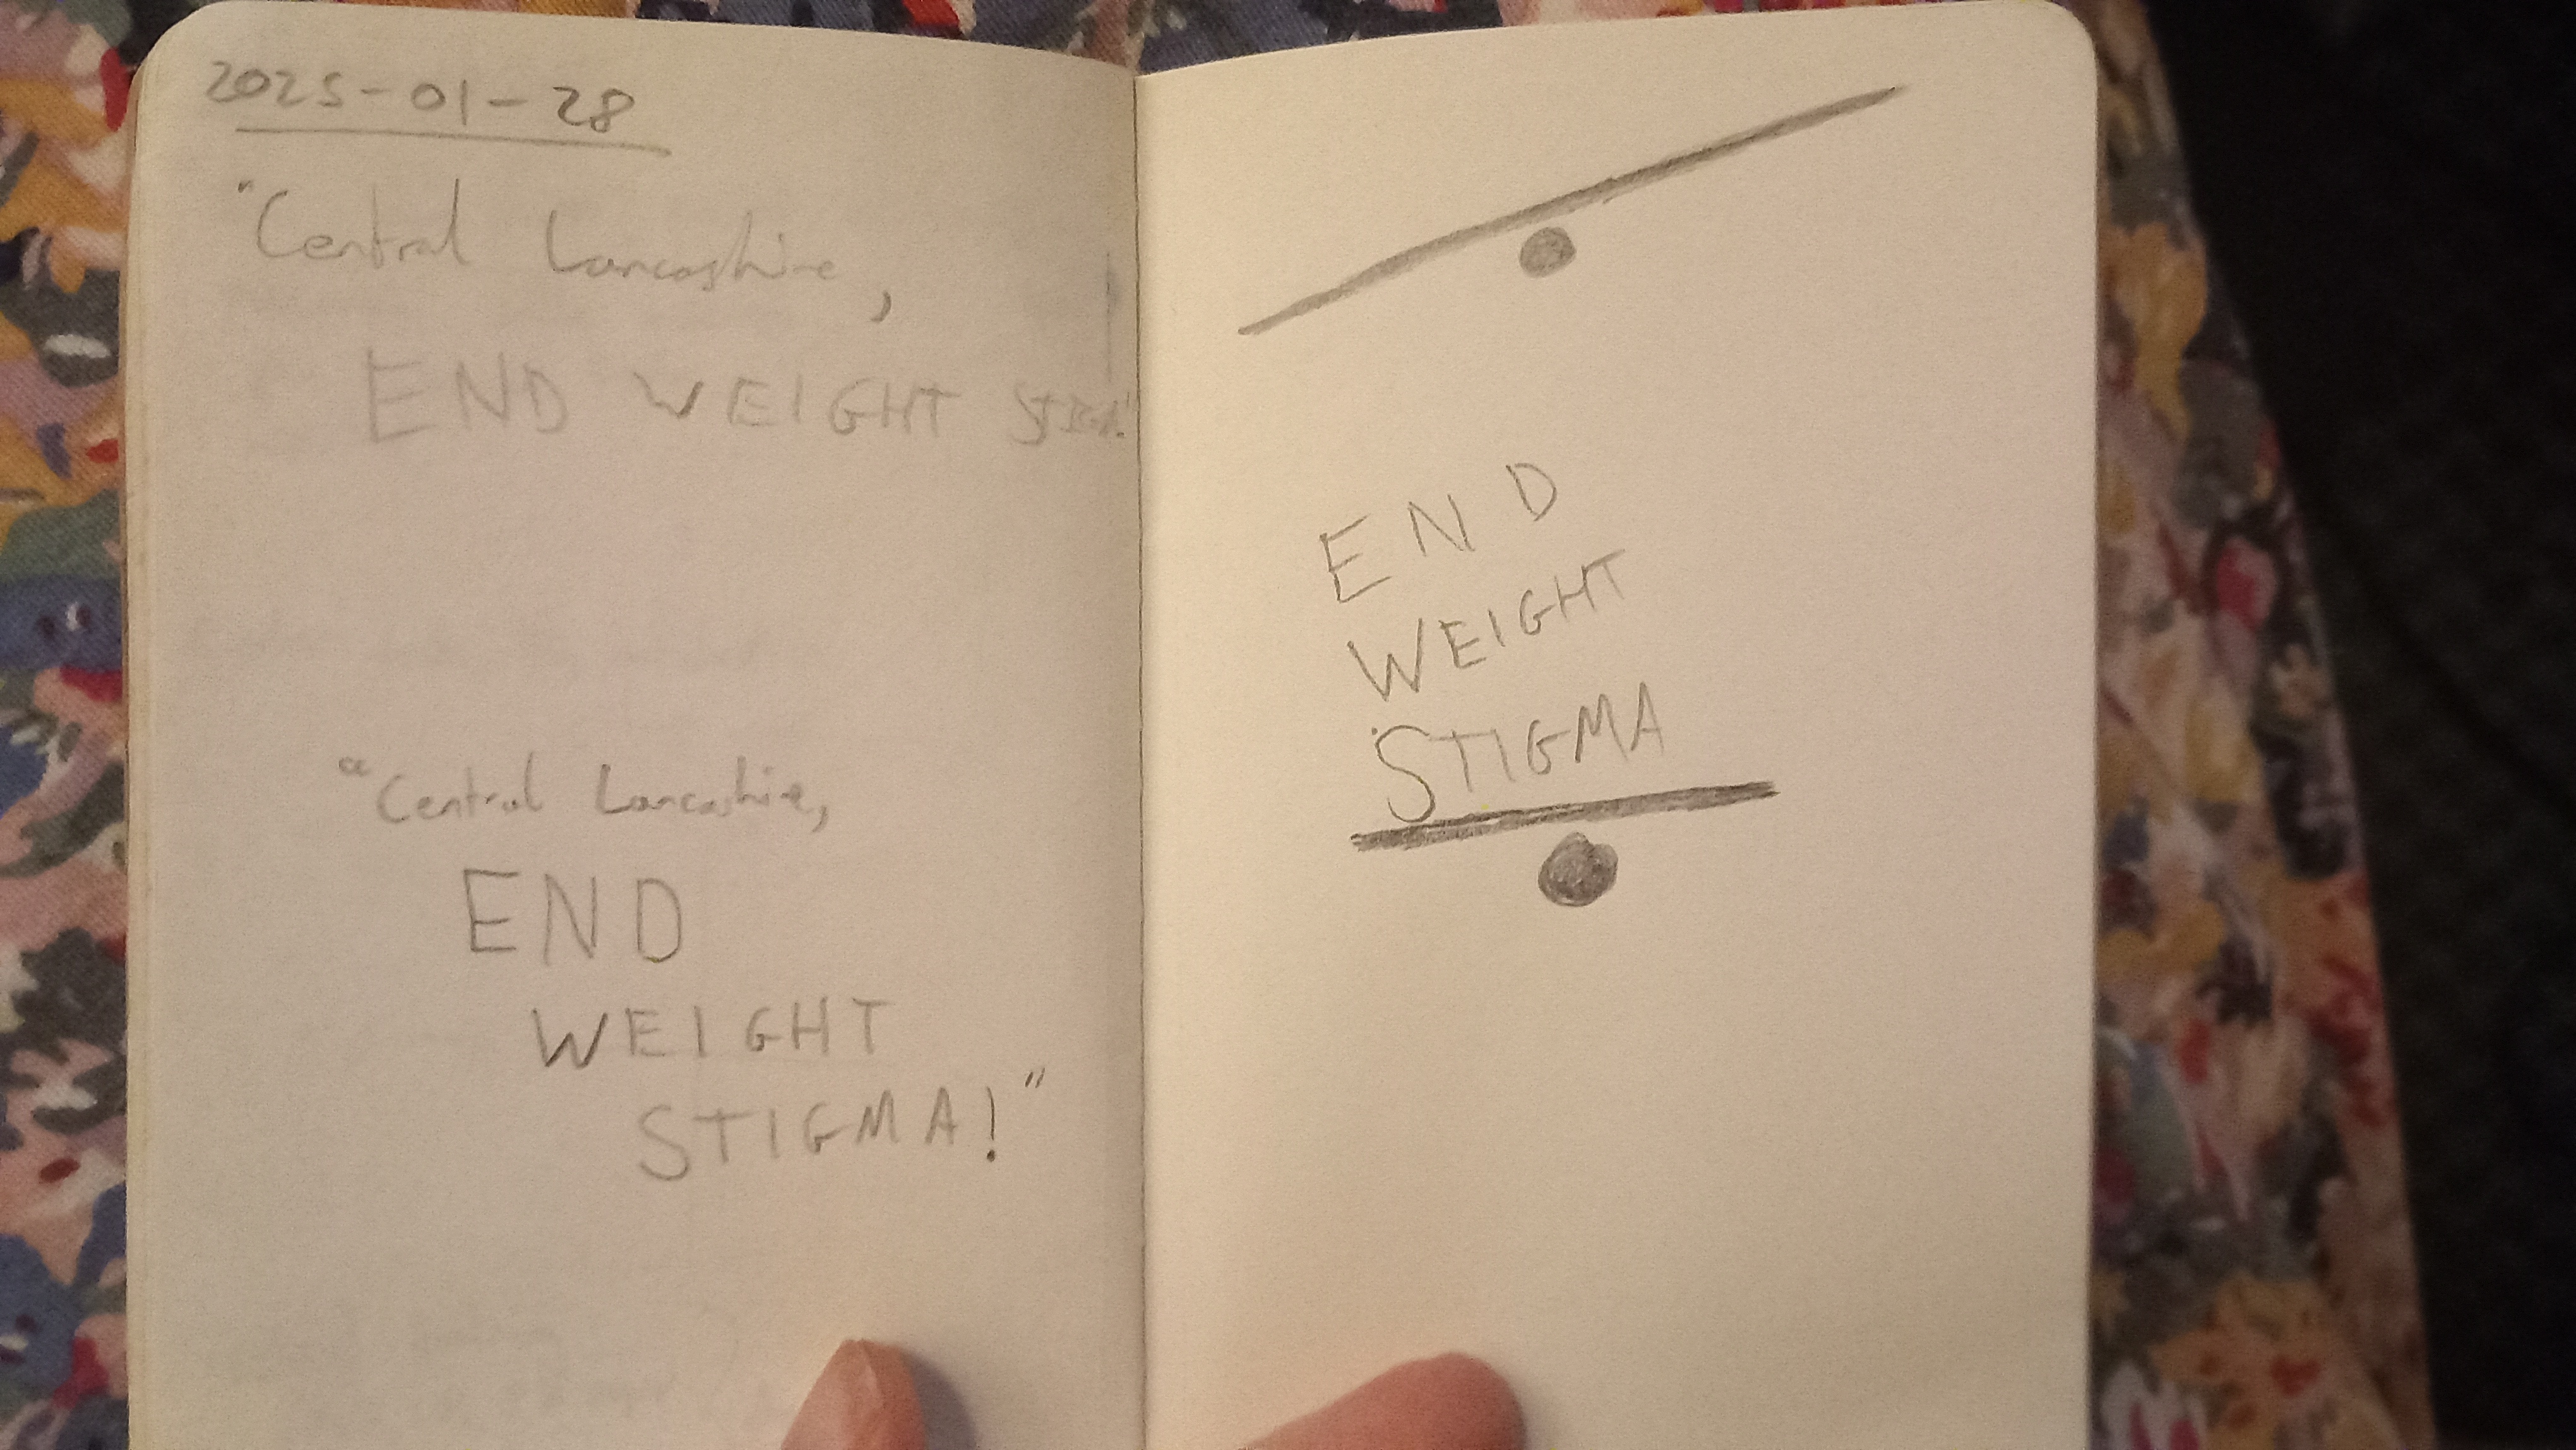 2025-01-28
"Central Lancashire,
END WEIGHT
"Central Lancashire,
END
WEIGHT
STIGMA!"
END
WEIGHT
STIGMA